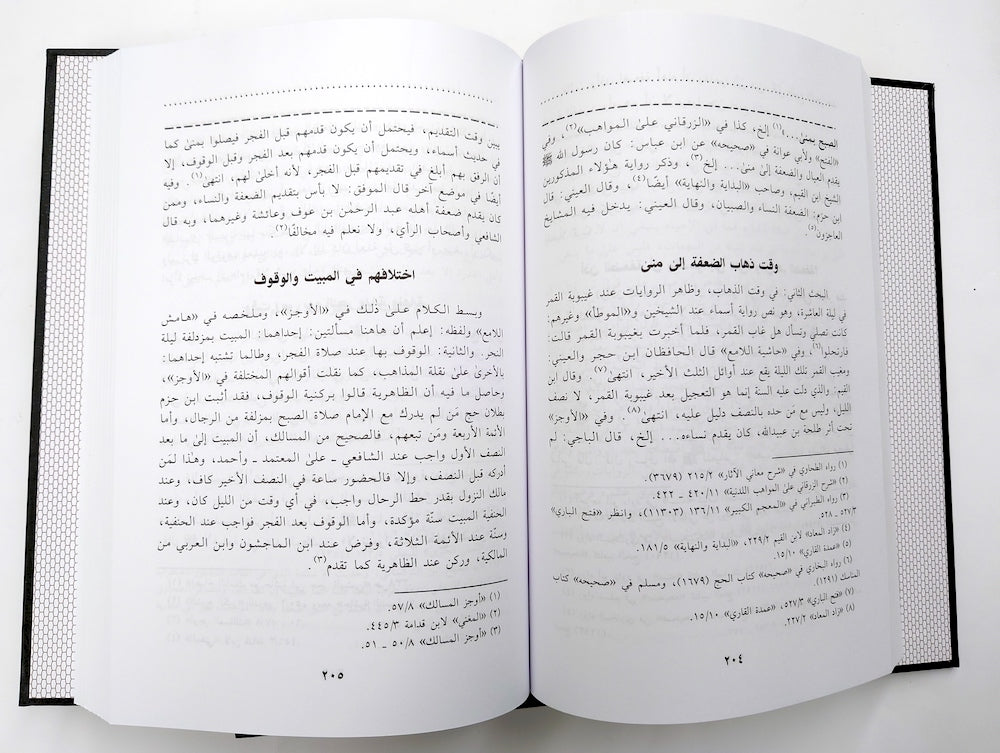 الصبح بمنى...(١) إلخ، كذا في «الزرقاني على المواهب»(٢)، وفي
«الفتح» ولأبي عوانة في «صحيحه» عن ابن عباس: كان رسول الله ﷺ
يقدم العيال والضعفة إلى منى... إلخ(٣)، وذكر رواية هؤلاء المذكورين
الشيخ ابن القيم، وصاحب «البداية والنهاية» أيضًا(٤)، وقال العيني: قال
ابن حزم: الضعفة النساء والصبيان، وقال العيني: يدخل فيه المشايخ
العاجزون(٥).
وقت ذهاب الضعفة إلى منى
البحث الثاني: في وقت الذهاب، وظاهر الروايات عند غيبوبة القمر
في ليلة العاشرة، وهو نص رواية أسماء عند الشيخين و«الموطأ» وغيرهم:
كانت تصلي وتسأل هل غاب القمر، فلما أخبرت بغيبوبة القمر قالت:
فارتحلوا(٦)، وفي «حاشية اللامع» قال الحافظان ابن حجر والعيني:
ومغيب القمر تلك الليلة يقع عند أوائل الثلث الأخير، انتهى(٧). وقال ابن
القيم: والذي دلت عليه السنة إنما هو التعجيل بعد غيبوبة القمر، لا نصف
الليل، وليس مع مَن حده بالنصف دليل عليه، انتهى(٨). وفي «الأوجز»
تحت أثر طلحة بن عبيدالله، كان يقدم نساءه... إلخ، قال الباجي: لم
(١) رواه الطحاوي في «شرح معاني الآثار» ٢١٥/٢ (٣٦٧٩).
(٢) «شرح الزرقاني على المواهب اللدنية» ٤٢٠/١١ ـ ٤٢٢.
(٣) رواه الطبراني في «المعجم الكبير» ١٣٦/١١ (١١٣٠٣)، وانظر «فتح الباري»
٥٢٧/٣ ـ ٥٢٨.
(٤) «زاد المعاد» لابن القيم ٢٢٩/٢، «البداية والنهاية» ١٨١/٥.
(٥) «عمدة القاري» ١٥/١٠.
(٦) رواه البخاري في «صحيحه» كتاب الحج (١٦٧٩)، ومسلم في «صحيحه» كتاب
المناسك (١٢٩١).
(٧) «فتح الباري» ٥٢٧/٣، «عمدة القاري» ١٥/١٠.
(٨) «زاد المعاد» ٢٢٧/٢.
٢٠٤
يبين وقت التقديم، فيحتمل أن يكون قدمهم قبل الفجر فيصلوا بمنى كما
في حديث أسماء، ويحتمل أن يكون قدمهم بعد الفجر وقبل الوقوف، إلا
إن الرفق بهم أبلغ في تقديمهم قبل الفجر، لأنه أخلى لهم، انتهى(١). وفيه
أيضًا في موضع آخر قال الموفق: لا بأس بتقديم الضعفة والنساء، وممن
كان يقدم ضعفة أهله عبد الرحمٰن بن عوف وعائشة وغيرهما، وبه قال
الشافعي وأصحاب الرأي، ولا نعلم فيه مخالفًا(٢).
اختلافهم في المبيت والوقوف
وبسط الكلام على ذلك في «الأوجز»، وملخصه في «هامش
اللامع» ولفظه: إعلم أن هاهنا مسألتين: إحداهما: المبيت بمزدلفة ليلة
النحر. والثانية: الوقوف بها عند صلاة الفجر، وطالما تشتبه إحداهما:
بالأخرى على نقلة المذاهب، كما نقلت أقوالهم المختلفة في «الأوجز»،
وحاصل ما فيه أن الظاهرية قالوا بركنية الوقوف، فقد أثبت ابن حزم
بطلان حج مَن لم يدرك مع الإمام صلاة الصبح بمزلفة من الرجال، وأما
الأئمة الأربعة ومَن تبعهم، فالصحيح من المسالك، أن المبيت إلى ما بعد
النصف الأول واجب عند الشافعي ـ على المعتمد ـ وأحمد، وهذا لمَن
أدركه قبل النصف، وإلا فالحضور ساعة في النصف الأخير كاف، وعند
مالك النزول بقدر حط الرحال واجب، في أي وقت من الليل كان، وعند
الحنفية المبيت سنّة مؤكدة، وأما الوقوف بعد الفجر فواجب عند الحنفية،
وسنّة عند الأئمة الثلاثة، وفرض عند ابن الماجشون وابن العربي من
المالكية، وركن عند الظاهرية كما تقدم(٣).
(١) «أوجز المسالك» ٥٧/٨.
(٢) «المغني» لابن قدامة ٤٤٥/٣.
(٣) «أوجز المسالك» ٥٠/٨ ـ ٥١.
٢٠٥